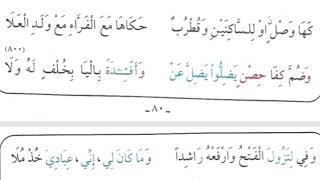 كَهَا وَصْلٍ اوْ لِلسَّاكِنَيْنِ وَقُطْرُبٌ حَكَاهَا مَعَ الْفَرَّاءِ مَعْ وَلَدِ الْعَلَا
وَضُمَّ كِفَا حِصْنٍ يَضِلُّوا يَضِلَّ عَنْ وَأَفْئِدَةً بِالْيَا بِخُلْفٍ لَهُ وَلَا (٨٠٠)
-٨٠-
وَفِي لِتَزُولَ الْفَتْحُ وَارْفَعْهُ رَاشِداً وَمَا كَانَ لِي، إِنِّي، عِبَادِيَ خُذْ مُلَا